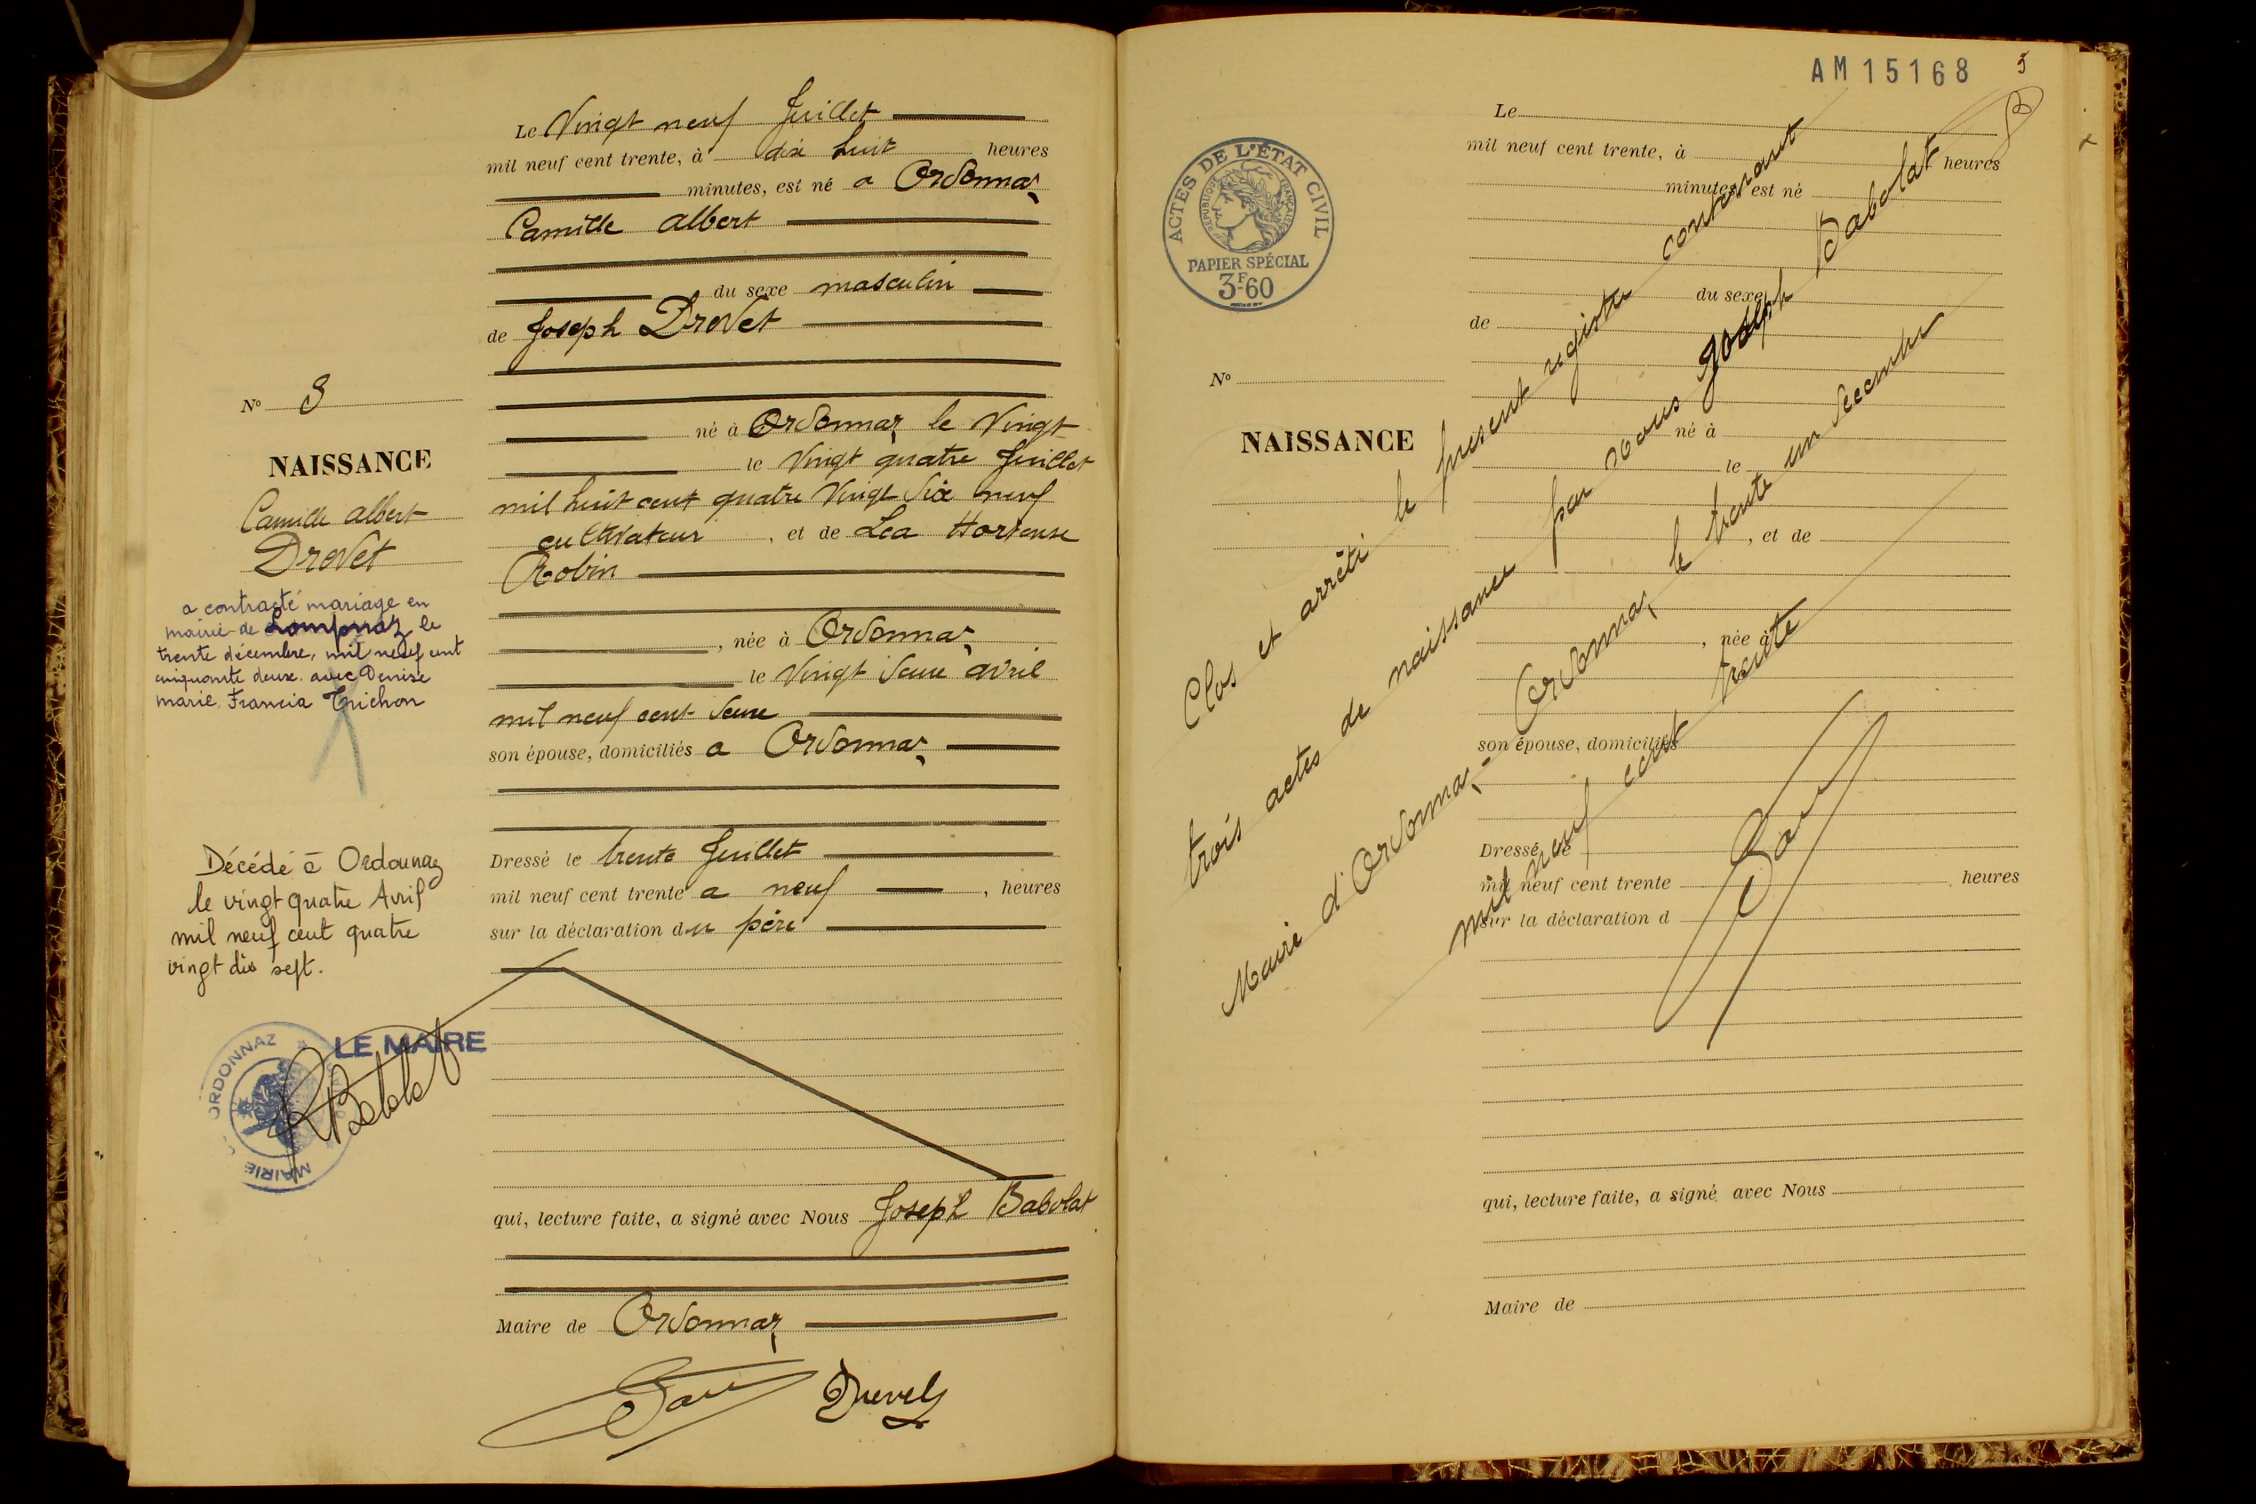 Le Vingt neuf Juillet
mil neuf cent trente, à dix huit heures
minutes, est né a Ordonnaz
Camille Albert
du sexe masculin
de Joseph Drevet
né à Ordonnaz le Vingt
le Vingt quatre Juillet
mil huit cent quatre Vingt dix neuf
cultivateur, et de Léa Hortense
Robin
, née à Ordonnaz
le Vingt deux avril
mil neuf cent deux
son épouse, domiciliés a Ordonnaz
Dressé le trente Juillet
mil neuf cent trente a neuf, heures
sur la déclaration du père
qui, lecture faite, a signé avec Nous Joseph Babolat
Maire de Ordonnaz
Drevet
N° 3
NAISSANCE
Camille Albert
Drevet
a contracté mariage en
mairie de Lompnaz le
trente décembre, mil neuf cent
cinquante deux avec Denise
marie Francia Trichon
Décédé à Ordonnaz
le vingt quatre Avril
mil neuf cent quatre
vingt dix sept.
LE MAIRE
MAIRIE ORDONNAZ
AM 15168
3
ACTES DE L'ÉTAT CIVIL
RÉPUBLIQUE FRANÇAISE
PAPIER SPÉCIAL
3F60
Le
mil neuf cent trente, à heures
minutes, est né
du sexe
de
N°
NAISSANCE
né à
le
, et de
, née à
son épouse, domiciliés
Dressé le
mil neuf cent trente heures
sur la déclaration d
qui, lecture faite, a signé avec Nous
Maire de
Clos et arrêté le présent registre contenant
trois actes de naissance par Nous Joseph Babolat
Maire d'Ordonnaz - Ordonnaz le trente un décembre
mil neuf cent trente